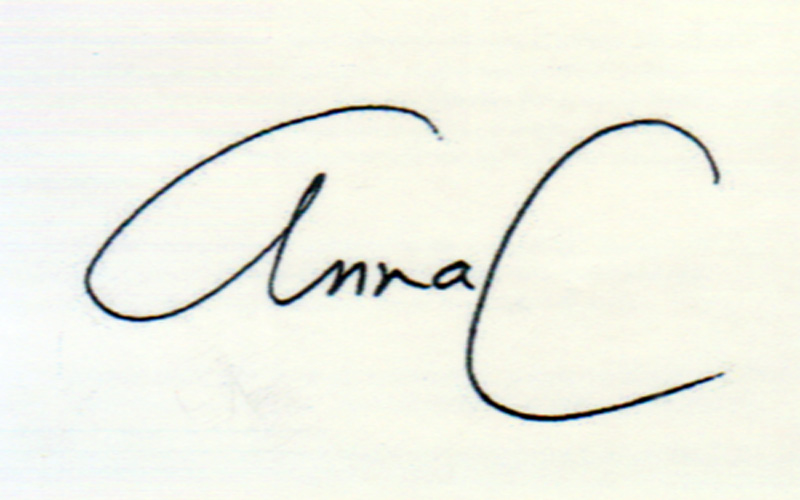 Anna C